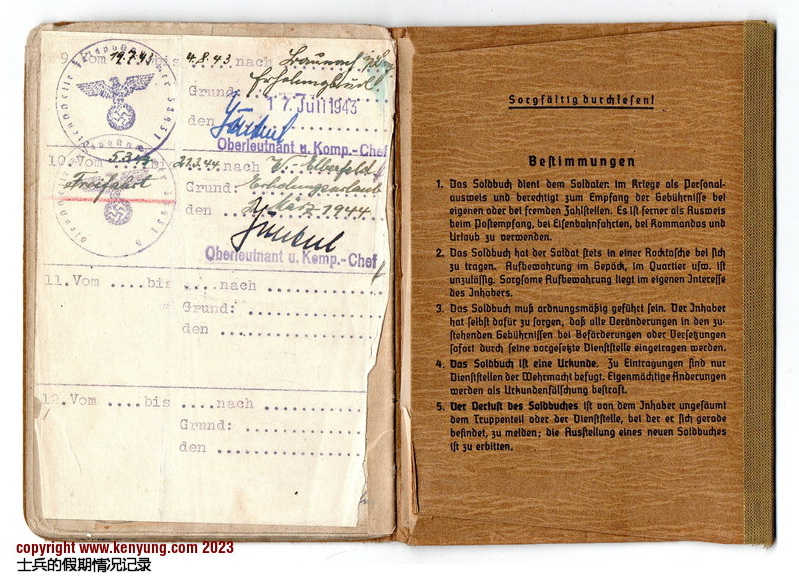 9. Vom 19.7.43 bis 4.8.43 nach
Erholungsurl
Grund:
17. Juli 1943
den
Oberleutnant u. Komp.-Chef
10. Vom 5.3.44 bis 22.3.44 nach W. Elberfeld
Freifahrt Grund: Erholungsurlaub
den 2. März 1944.
Oberleutnant u. Komp.-Chef
11. Vom ....bis ....nach ............
Grund: ............
den ............
12. Vom ....bis ....nach ............
Grund: ............
den ............
Sorgfältig durchlesen!
Bestimmungen
1. Das Soldbuch dient dem Soldaten im Kriege als Personal-
ausweis und berechtigt zum Empfang der Gebührnisse bei
eigenen oder bei fremden Zahlstellen. Es ist ferner als Ausweis
beim Postempfang, bei Eisenbahnfahrten, bei Kommandos und
Urlaub zu verwenden.
2. Das Soldbuch hat der Soldat stets in einer Rocktasche bei sich
zu tragen. Aufbewahrung im Gepäck, im Quartier usw. ist
unzulässig. Sorgsame Aufbewahrung liegt im eigenen Interesse
des Inhabers.
3. Das Soldbuch muß ordnungsmäßig geführt sein. Der Inhaber
hat selbst dafür zu sorgen, daß alle Veränderungen in den zu-
stehenden Gebührnissen bei Beförderungen oder Versetzungen
sofort durch seine vorgesetzte Dienststelle eingetragen werden.
4. Das Soldbuch ist eine Urkunde. Zu Eintragungen sind nur
Dienststellen der Wehrmacht befugt. Eigenmächtige Änderungen
werden als Urkundenfälschung bestraft.
5. Der Verlust des Soldbuches ist von dem Inhaber ungesäumt
dem Truppenteil oder der Dienststelle, bei der er sich gerade
befindet, zu melden; die Ausstellung eines neuen Soldbuches
ist zu erbitten.
copyright www.kenyung.com 2023
士兵的假期情况记录